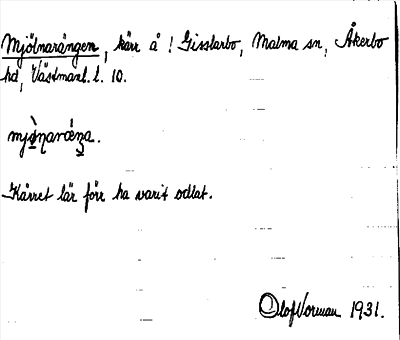 Mjölnarängen, kärr å ! Gisslarbo, Malma sn, Åkerbo
hd, Västmanl. l. 10.
Kärret lär förr ha varit odlat.
Olof Vorman 1931.